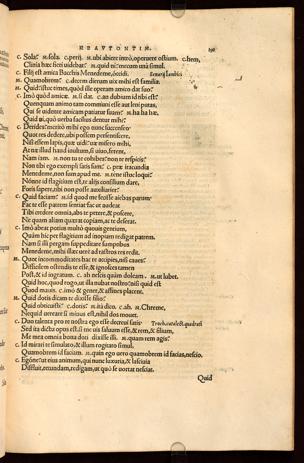 HEAVTONTIM.
C. Sola? M. sola. C. perij. M. vbi abiere intrò, operuere ostium. C. hem,
Clinia hæc fieri videbat? M. quid ni? mecum vnà simul.
C. Filij est amica Bacchis Menedeme, occidi.
M. Quamobrem? C. decem dierum uix mihi est familia.
M. Quid? istuc times, quòd ille operam amico dat suo?
C. Imò quòd amicæ. M. si dat. C. an dubium id tibi est?
Quenquam animo tam communi esse aut leni putas,
Qui se uidente amicam patiatur suam? M. ha ha hæ,
Quid ni, quò uerba facilius dentur mihi?
C. Derides? meritò mihi ego nunc succenseo
Quot res dedere, ubi possem persentiscere,
Nisi essem lapis, quæ uidi? uæ misero mihi,
At næ illud haud inultum, si uiuo, ferent,
Nam iam. M. non tu te cohibes? non te respicis?
Non tibi ego exempli satis sum? C. præ iracundia
Menedeme, non sum apud me. M. tene istuc loqui?
Nonne id flagitium est, te alijs consilium dare,
Foris sapere, tibi non posse auxiliarier?
C. Quid faciam? M. id quod me fecisse aiebas parum
Fac te esse patrem sentiat fac ut audeat
Tibi credere omnia, abs te petere, & poscere,
Ne quam aliam quærat copiam, ac te deserat.
C. Imò abeat potius multò quouis gentium,
Quàm hic per flagitium ad inopiam redigat patrem.
Nam si illi pergam suppeditare sumptibus
Menedeme, mihi illæc uerè ad rastros res redit.
M. Quot incommoditates hac re accipies, nisi caues?
Difficilem ostendis te esse, & ignosces tamen
Pòst, & id ingratum. C. ah nescis quàm doleam. M. ut lubet.
Quid hoc, quod rogo, ut illa nubat nostro? nisi quid est
Quod mauis. C. imò & gener, & affines placent.
M. Quid dotis dicam te dixisse filio?
Quid obticuisti? C. dotis? M. ita dico. C. ah. M. Chreme,
Nequid uereare si minus est, nihil dos mouet.
C. Duo talenta pro re nostra ego esse decreui satis
Sed ita dictu opus est, si me uis saluum esse, & rem, & filium,
Me mea omnia bona doti dixisse illi. M. quam rem agis?
C. Id mirari te simulato, & illum rogitato simul,
Quamobrem id faciam. M. quin ego uero quamobrem id facias, nescio.
C. Egóne? ut eius animum, qui nunc luxuria, & lasciuia
Diffluit, retundam, redigam, ut quò se uortat nesciat.
Quid